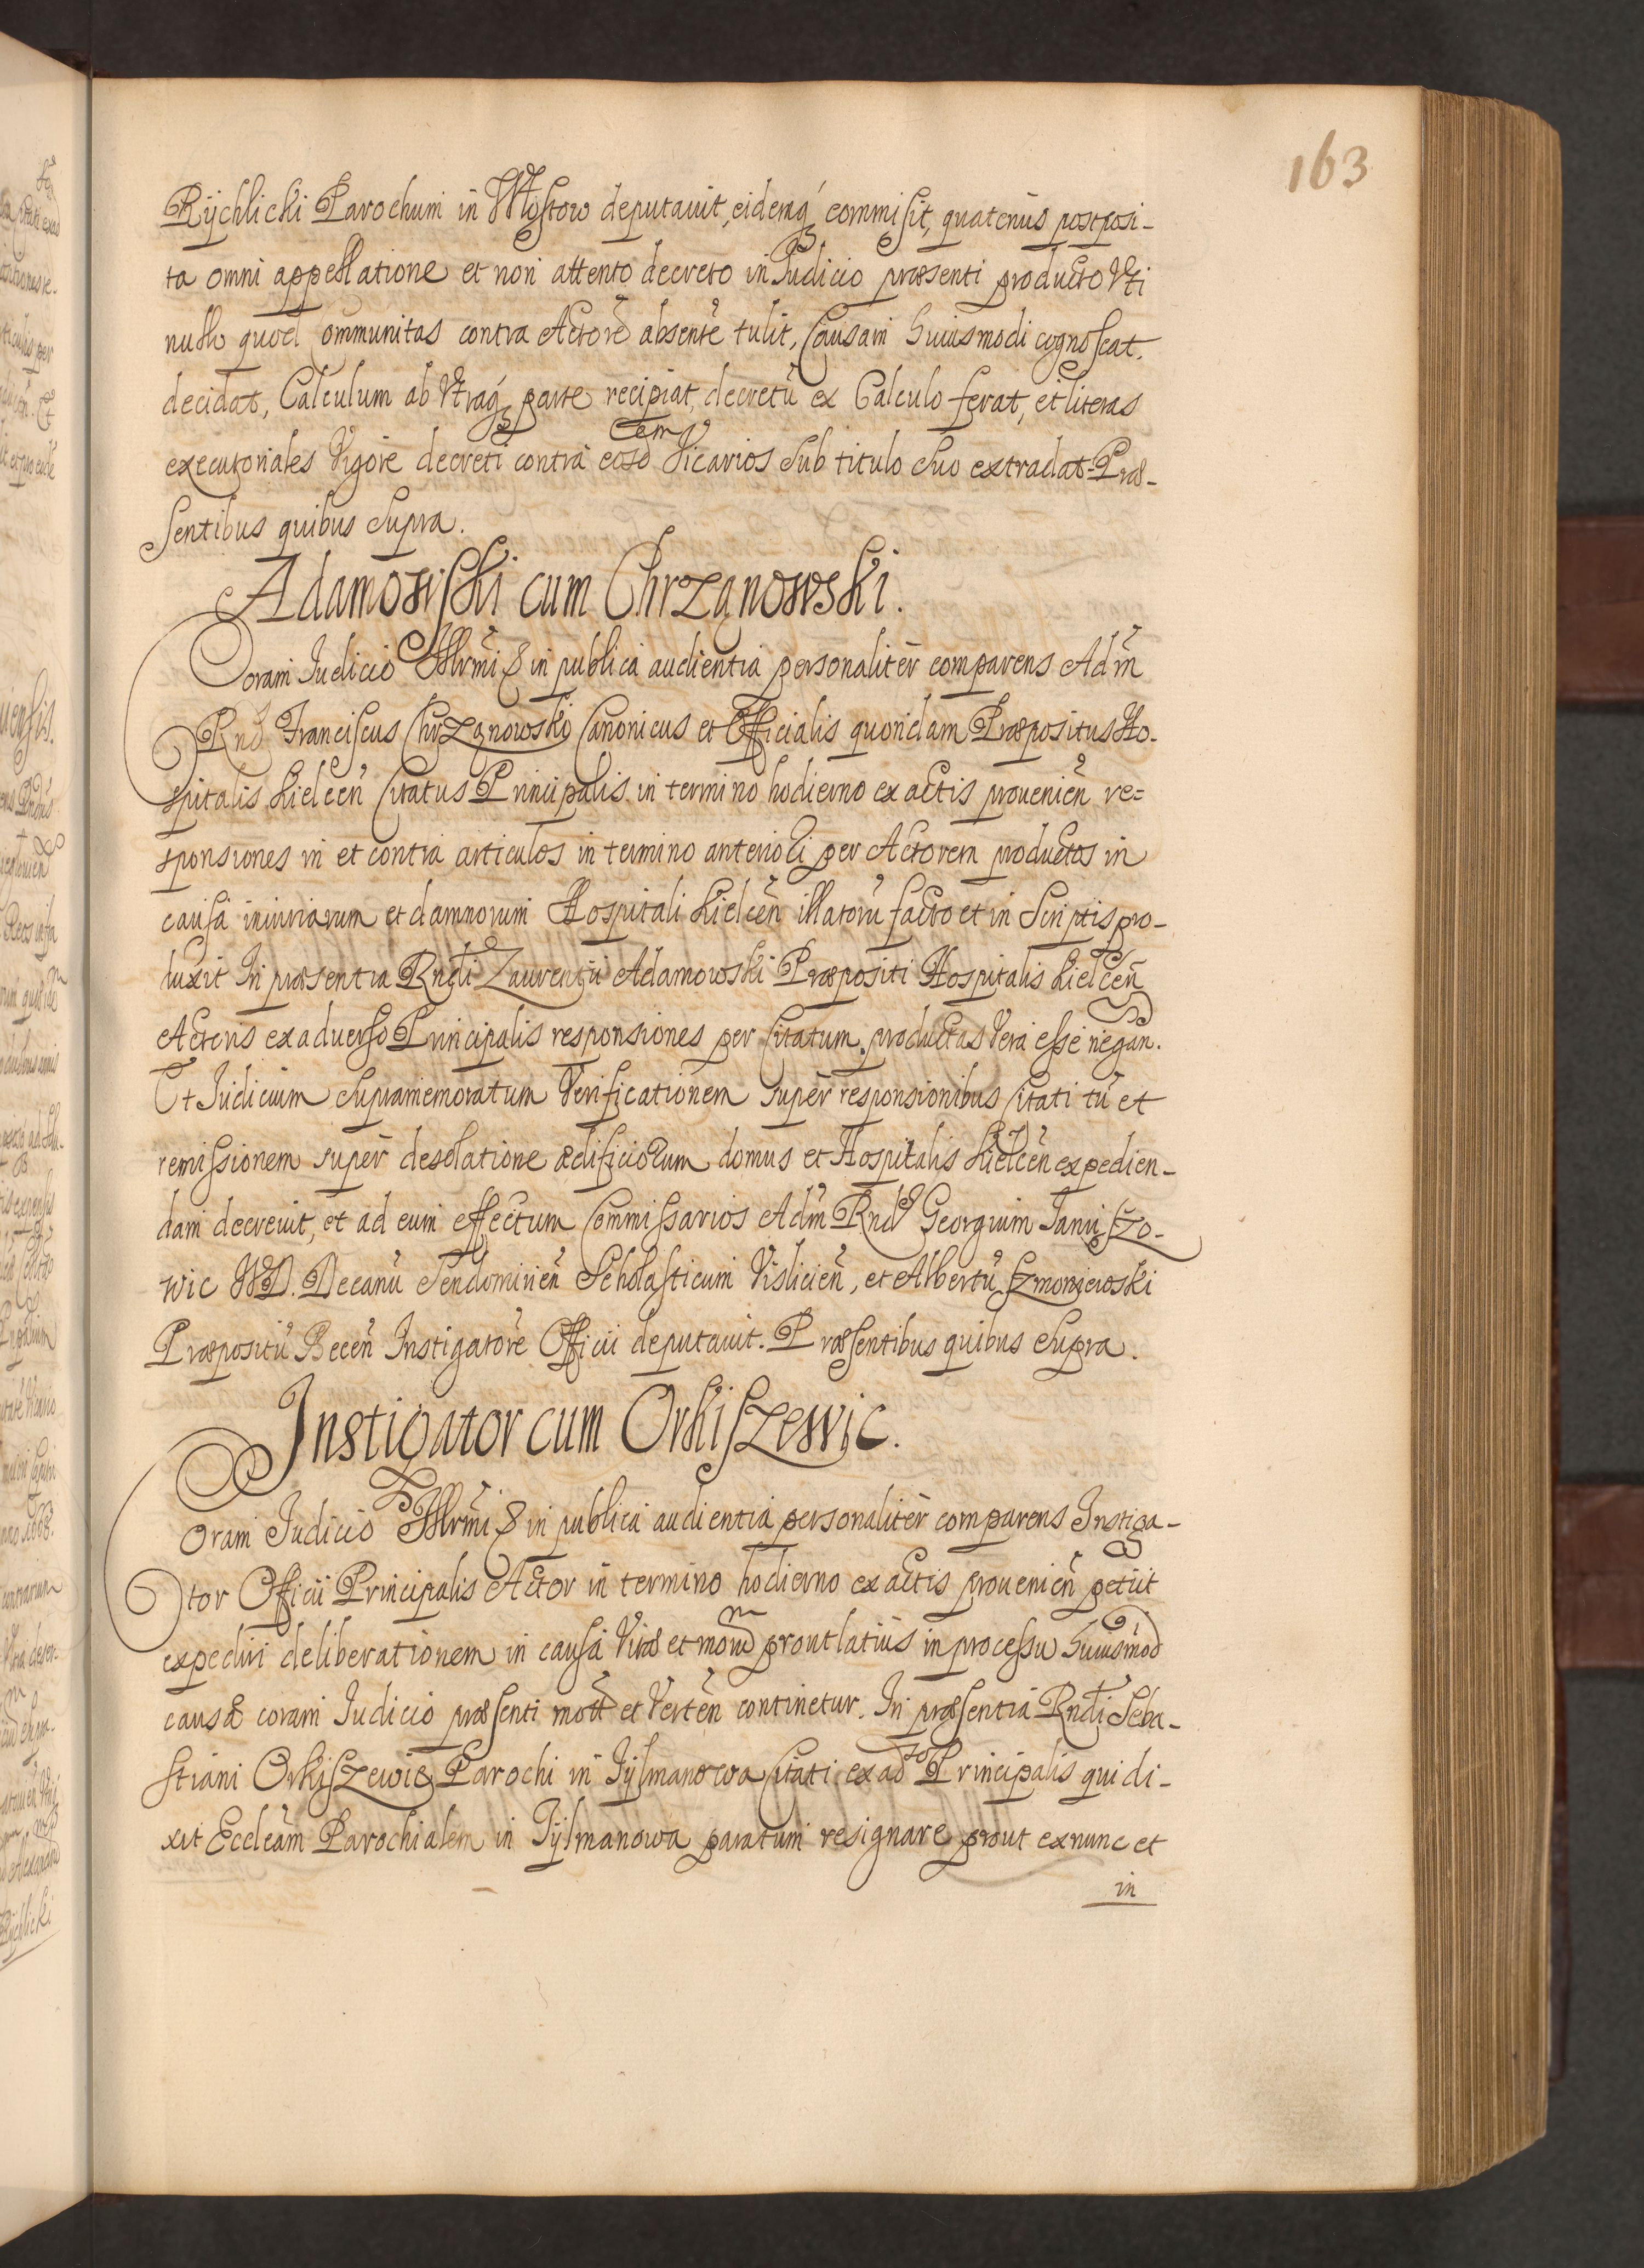 163
Rychlicki Parochum in Mstow deputauit, eidemq, commisit, quatenus postposi-
ta omni appellatione et non attento decreto in Iudicio præsenti producto Vti
nullo quod Communitas contra Actorē absentē tulit, Causam huiusmodi cognoscat,
decidat, Calculum ab Vtraq, parte recipiat, decretū ex Calculo ferat, et literas
executoriales Vigore decreti contra eosd Vicarios Sub titulo Suo extradat. Præ-
sentibus quibus Supra.
Adamowski cum Chrzanowski.
Coram Iudicio Illrmi & in publica audientia personaliter comparens Adm
Rnd Franciscus Chrzanowski Canonicus et Officialis quondam Præpositus Ho-
spitalis Kielcen Citatus Principalis in termino hodierno ex actis prouenien re=
sponsiones in et contra articulos in termino anteriori per Actorem productos in
causa iniuriarum et damnorum Hospitali Kielcen illatorū facto et in Scriptis pro-
duxit In præsentia Rndi Laurentii Adamowski Præpositi Hospitalis Kielcen
Actoris ex aduerso Principalis responsiones per Citatum productas Vera esse negan.
Et Iudicium Supramemoratum Verificationem super responsionibus Citati tū et
remissionem super desolatione ædificiorum domus et Hospitalis Kielcen expedien-
dam decreuit, et ad eum effectum Commissarios Adm Rnd Georgium Janiszo-
wic Decanū Sendomirien Scholasticum Vislicien, et Albertū
Præpositū Becen Instigatorē Officii deputauit. Præsentibus quibus Supra.
Instigator cum Orkiszewic.
Coram Iudicio Illrmi & in publica audientia personaliter comparens Instiga-
tor Officii Principalis Actor in termino hodierno ex actis prouenien petiit
expediri deliberationem in causa Vitæ et morum prout latius in processu huiusmod
causæ coram Iudicio præsenti mott et Verten continetur. In præsentia Rndi Seba-
stiani Orkiszewic Parochi in Tylmanowa Citati ex adso Principalis qui di-
xit Eccleam Parochialem in Tylmanowa paratum resignare prout ex nunc et
in